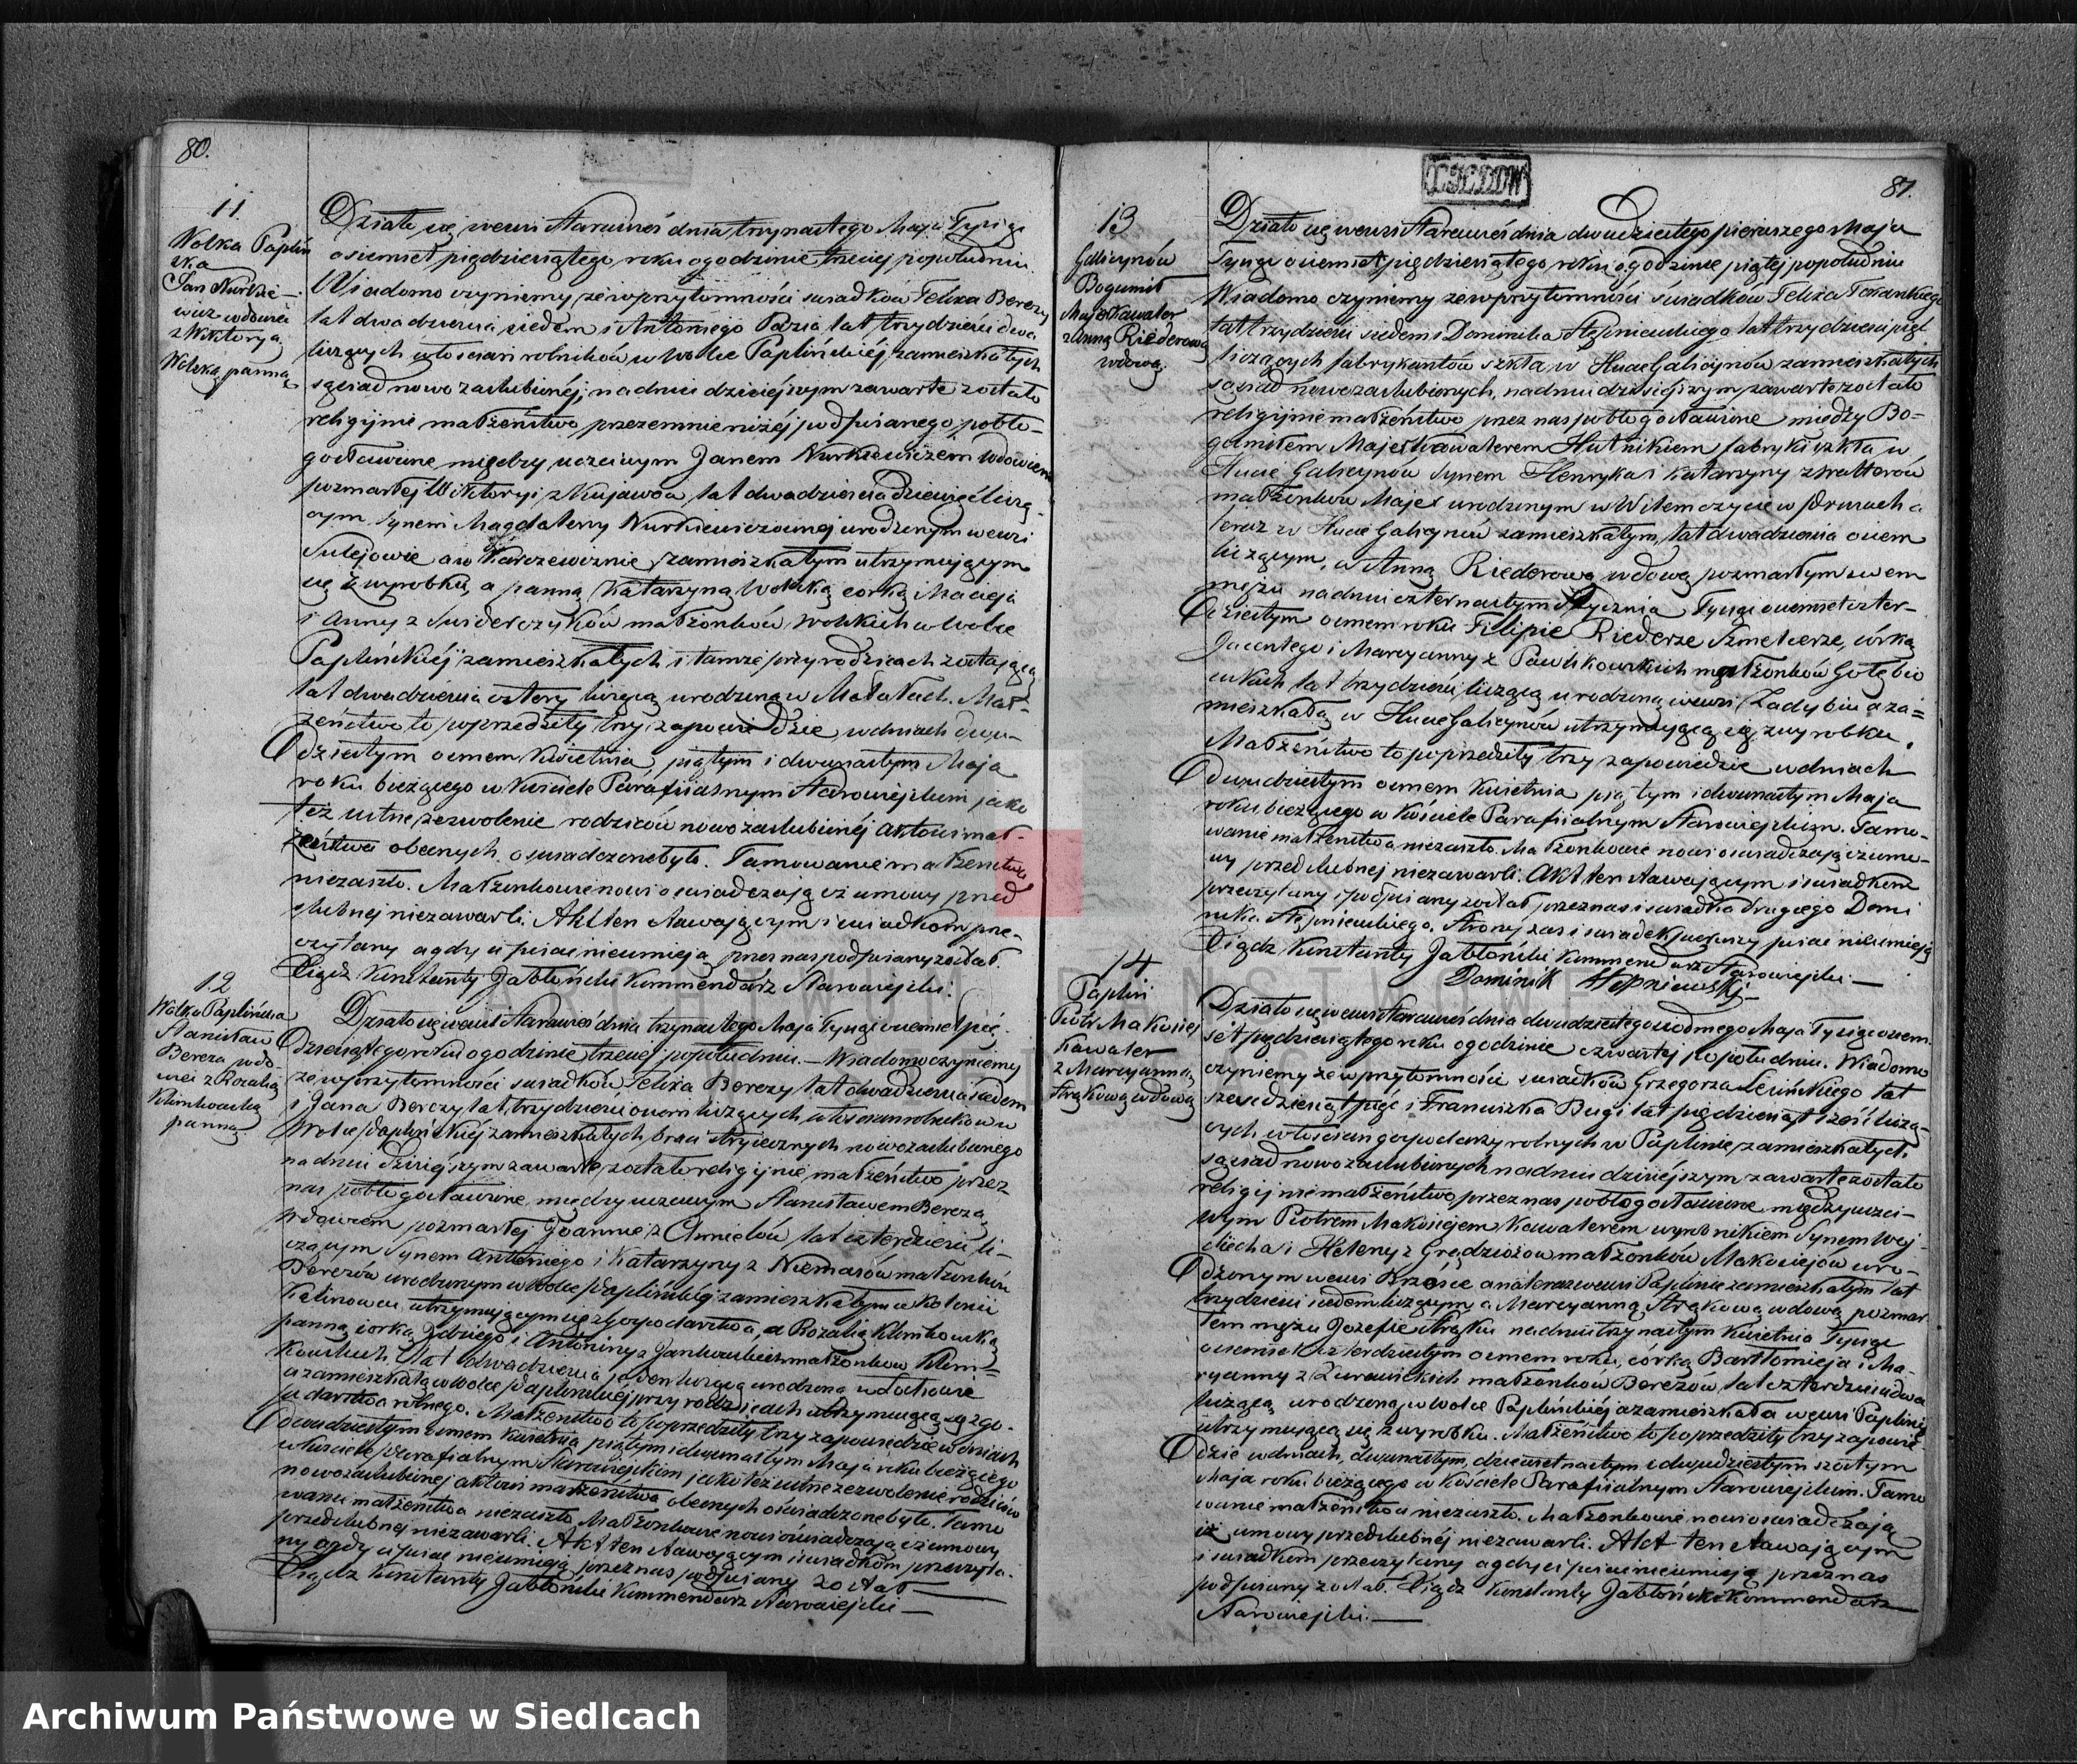 80.
11
Wolka Papliń
ska
Jan Nurkie-
wicz wdowiec
z Wiktoryą
Wolską panną
Działo się wewsi Starawieś dnia trzynastego Maja Tysiąc
osiemset pięćdziesiątego roku o godzinie trzeciej popołudniu
Wiadomo czyniemy że w przytomności świadków Felixa Berezy
lat dwadzieścia siedem i Antoniego Pazia lat trzydzieści dwa
liczących włościan rolników w Wolce Paplińskiéj zamieszkałych
sąsiad nowo zaslubionéj; na dniu dzisiéjszym zawarte zostało
religijnie małżeństwo przezemnie niżéj podpisanego pobło-
gosławione między uczciwym Janem Nurkiewiczem wdowcem
pozmarłej Wiktoryi z Kujawów, lat dwadzieścia dziewięć liczą-
cym, synem Magdaleny Nurkiewiczównej urodzonym wewsi
Sulejowie a w Karczewiznie zamieszkałym utrzymującym
się z wyrobku, a panną Katarzyną Wolską córką Macieja
i Anny z Swiderczyków małżonków Wolskich w Wolce
Paplińskiéj zamieszkałych i tamże przy rodzicach zostającą
lat dwadzieścia cztery liczącą urodzoną w Matałach. Mał-
żeństwo to poprzedziły trzy zapowiedzie w dniach dwu-
dziestym osmem Kwietnia, piątym i dwunastym Maja
roku bieżącego w Kościele Parafijalnym Starowiejskim jako
też ustne zezwolenie rodziców nowo zaslubionéj aktowi mał-
żeństwa obecnych oświadczone było. Tamowanie małżeństwa
niezaszło. Małżonkowie nowi oświadczają iż umowy przed
ślubnej niezawarli. Akt ten stawającym i świadkom prze-
czytany a gdy ci pisać nieumieją przez nas podpisany został.
Xiądz Konstanty Jabłoński Kommendarz Starowiejski.
12
Wolka Paplińska
Stanisław
Bereza wdo-
wiec z Rozalią
Klimkowską
panną
Działo się wewsi Starawieś dnia trzynastego Maja Tysiąc osiemset pięć-
dziesiątego roku o godzinie trzeciej popołudniu. — Wiadomo czyniemy
że w przytomności świadków Felixa Berezy lat dwadzieścia siedem
i Jana Berezy lat trzydzieści osiem liczących, włościan rolników w
Wolce Paplińskiéj zamieszkałych, braci stryjecznych nowozaslubionego
na dniu dzisiéjszym zawarte zostało religijnie małżeństwo przez
nas pobłogosławione, między uczciwym Stanisławem Berezą
wdowcem pozmarłej Joannie z Chmielów, lat czterdzieści li-
czącym Synem Antoniego i Katarzyny z Niemasów małżonków
Berezów urodzonym w Wolce Paplińskiéj zamieszkałym w Kolonii
Kalinowcu utrzymującym się z gospodarstwa, a Rozalią Klimkowską
panną córką Idziego i Antoniny z Jankowskich małżonków Klim-
kowskich, lat dwadzieścia jeden liczącą urodzoną w Łochowie
a zamieszkałą w Wolce Paplińskiéj przy rodzicach utrzymującą się z go-
spodarstwa rolnego. Małżeństwo to poprzedziły trzy zapowiedzie w dniach
dwudziestym osmem Kwietnia piątym i dwunastym Maja roku bieżącego
w Kościele Parafialnym Starowiejskim jako też ustne zezwolenie rodziców
nowozaslubionej aktowi małżeństwa obecnych oświadczone było. Tamo
wanie małżeństwa niezaszło. Małżonkowie nowi oświadczają iż umowy
przedślubnej niezawarli. Akt ten stawającym i świadkom przeczyta-
ny a gdy ci pisać nieumieją przez nas podpisany został —
Xiądz Konstanty Jabłoński Kommendarz Starowiejski —
81.
13
Galicynów
Bogumił
Majes kawaler
z Anną Riederową
wdową.
Działo się wewsi Starawieś dnia dwudziestego pierwszego Maja
Tysiąc osiemset pięćdziesiątego roku o godzinie piątej popołudniu
Wiadomo czyniemy że w przytomności świadków Felixa
lat trzydzieści siedem i Dominika Stępniewskiego lat trzydzieści pięć
liczących fabrykantów szkła w Hucie Galicynów zamieszkałych
sąsiad nowozaslubionych, na dniu dzisiéjszym zawarte zostało
religijnie małżeństwo przez nas pobłogosławione między Bo-
gumiłem Majes kawalerem Hutnikiem fabryki szkła w
Hucie Galicynów Synem Henryka i Katarzyny z
małżonków Majes urodzonym w w Prusach a
teraz w Hucie Galicynów zamieszkałym, lat dwadzieścia osiem
liczącym, a Anną Riederową wdową pozmarłym swem
mężu na dniu czternastym Stycznia Tysiąc osiemset czter-
dziestym osmem roku Filipie Riederze Szmelcerze, córką
Jacentego i Maryanny z Pawlikowskich małżonków Gołębio
wskich lat trzydzieści liczącą urodzoną wewsi Zadybiu a za-
mieszkałą w Hucie Galicynów utrzymującą się z wyrobku.
Małżeństwo to poprzedziły trzy zapowiedzie w dniach
dwudziestym osmem Kwietnia piątym i dwunastym Maja
roku bieżącego w Kościele Parafijalnym Starowiejskim. Tamo-
wanie małżeństwa niezaszło. Małżonkowie nowi oświadczają iż umo-
wy przedślubnej niezawarli. Akt ten stawającym i świadkom
przeczytany i podpisany został przez nas i świadka drugiego Domi
nika Stępniewskiego. Strony zaś i świadek pierwszy pisać nieumieją
Xiądz Konstanty Jabłoński Kommendarz Starowiejski —
Dominik Stępniewski
14
Paplin
Piotr Makosiej
Kawaler
z Maryanną
Strąkową wdową
Działo się wewsi Starawieś dnia dwudziestego siódmego Maja Tysiąc osiem-
set pięćdziesiątego roku o godzinie czwartej popołudniu. Wiadomo
czyniemy że w przytomności świadków Grzegorza Lesińskiego lat
sześćdziesiąt pięć i Franciszka Bugi lat pięćdziesiąt sześć liczą-
cych, włościan gospodarzy rolnych w Paplinie zamieszkałych
sąsiad nowozaslubionych na dniu dzisiéjszym zawarte zostało
religijnie małżeństwo przez nas pobłogosławione między uczci-
wym Piotrem Makosiejem Kawalerem wyrobnikiem Synem Woj-
ciecha i Heleny z Grędziożów małżonków Makosiejów uro-
dzonym wewsi Brzózie a na teraz wewsi Paplinie zamieszkałym lat
trzydzieści siedem liczącym, a Maryanną Strąkową wdową pozmar
łem mężu Jozefie Strąku na dniu trzynastym Kwietnia Tysiąc
osiemset czterdziestym osmem roku, córką Bartłomieja i Ma-
ryanny z Zurawskich małżonków Berezów, lat czterdzieści dwa
liczącą, urodzoną w Wolce Paplińskiéj a zamieszkałą wewsi Paplinie
utrzymującą się z wyrobku. Małżeństwo to poprzedziły trzy zapowie
dzie w dniach dwunastym, dziewiętnastym i dwudziestym szóstym
Maja roku bieżącego w Kościele Parafijalnym Starowiejskim. Tamo
wanie małżeństwa niezaszło. Małżonkowie nowi oświadczają
iż umowy przedślubnéj niezawarli. Akt ten stawającym
i świadkom przeczytany a gdy ci pisać nieumieją przez nas
podpisany został. Xiądz Konstanty Jabłoński Kommendarz
Starowiejski. —
Archiwum Państwowe w Siedlcach